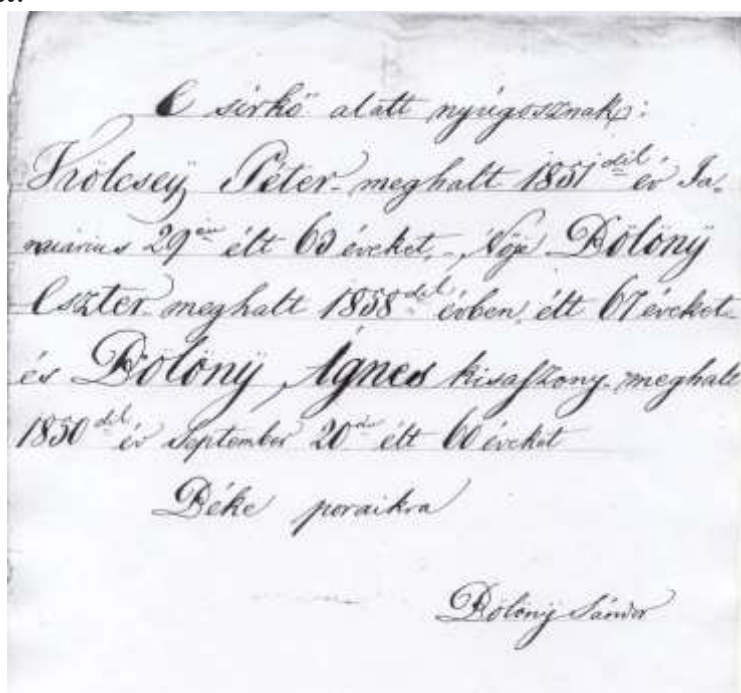 E sírkő alatt nyúgosznak:
Kölcseÿ Péter meghalt 1851dik év Ja-
nuárius 29én élt 63 éveket, Nője Bölönÿ
Eszter meghalt 1858dik évben, élt 67 éveket
és Bölönÿ Ágnes kisaſszony meghalt
1850dik év September 20án élt 60 éveket
Béke poraikra
Bölönÿ Sándor